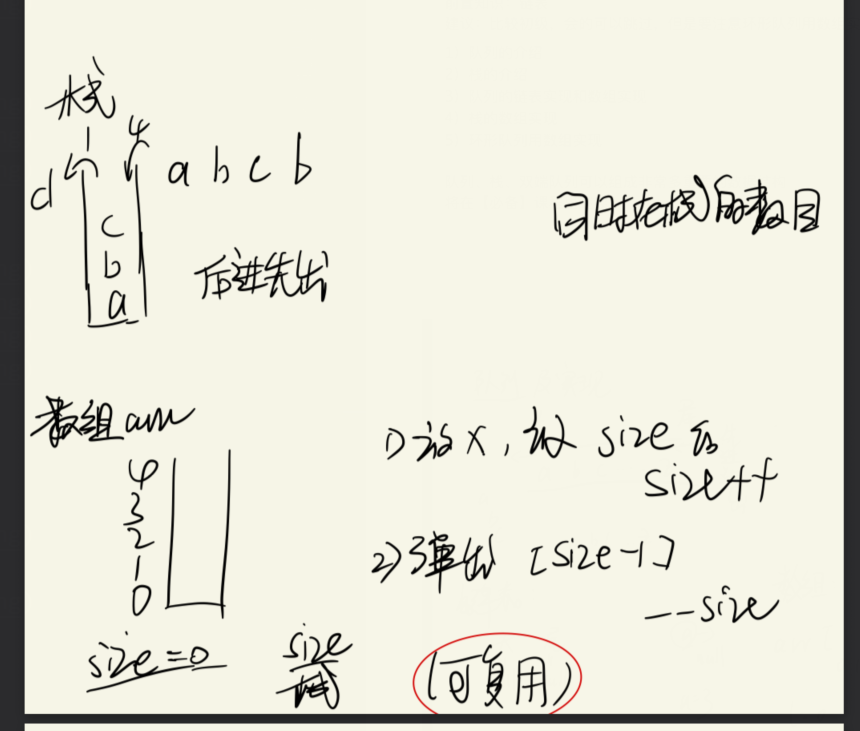 栈
d a b c b
c
b
a
后进先出
同时在栈的数目
数组arr
4
3
2
1
0
size=0
size
1)放x,放size后
size++
2)弹出 [size-1]
--size
(可复用)